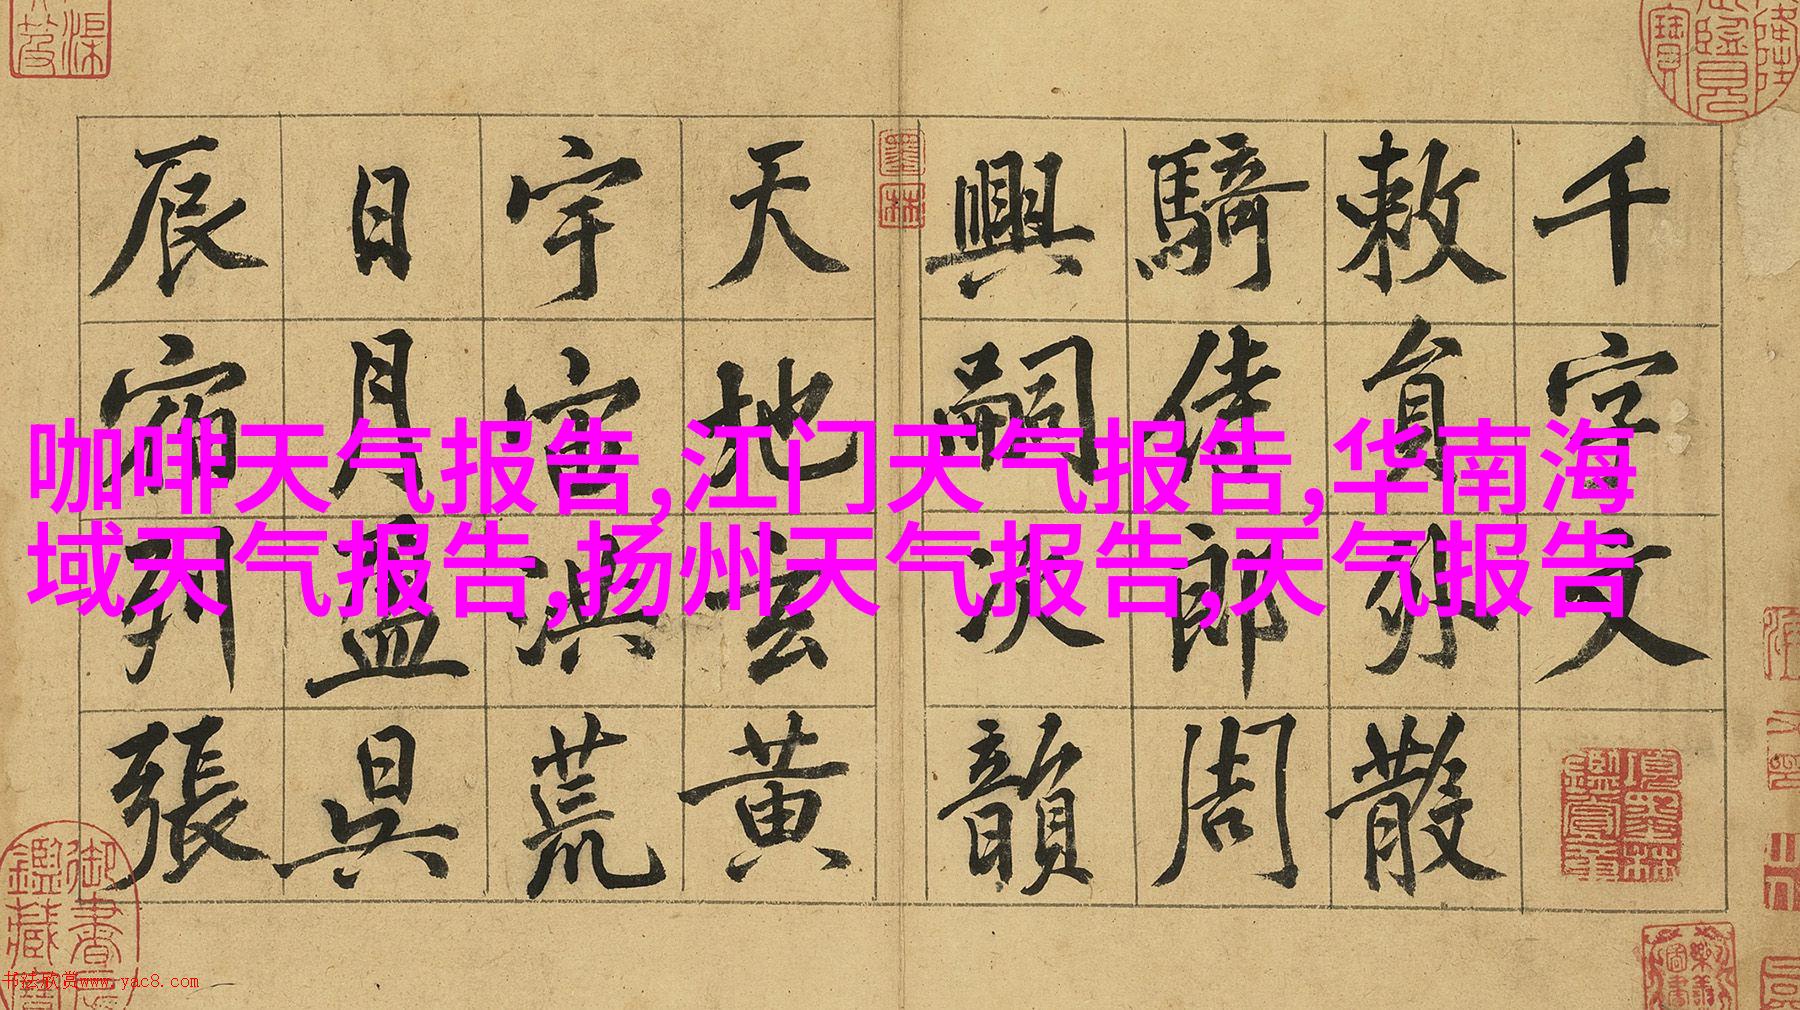 咖啡天气报告,江门天气报告,华南海
域天气报告,扬州天气报告,天气报告
千字文
敕員外散
騎侍郎周
興嗣次韻
天地玄黃
宇宙洪荒
日月盈昃
辰宿列張
墨林
項墨林鑑賞章
书法欣赏www.yac8.com